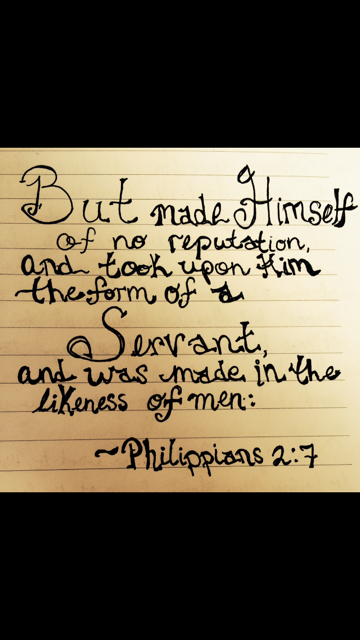 But made Himself
of no reputation,
and took upon Him
the form of a
Servant,
and was made in the
likeness of men:
~Philippians 2:7